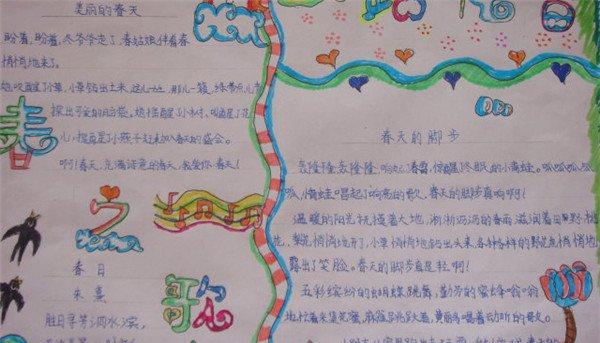 美丽的春天
盼着,盼着,冬爷爷走了,春姑娘伴着春
悄悄地来了。
她吹醒了小草,小草钻出土来,这儿一丛,那儿一簇,绿带点儿黄
探出可爱的脑袋。她摇醒了小树,叫醒了花
儿,提醒了小燕子赶来加入春天的盛会。
啊!春天,充满诗意的春天,我爱你春天!
春
之
歌
春日
朱熹
胜日寻芳泗水滨,
春天的脚步
轰隆隆轰隆隆,响起了春雷,惊醒了冬眠的小青蛙。呱呱呱呱
呱,青蛙唱起了响亮的歌,春天的脚步真响啊!
温暖的阳光抚摸着大地,淅淅沥沥的春雨滋润着田野,桃
花,梨花悄悄地开了,小草悄悄地钻出头来,各种各样的野花也悄悄地
露出了笑脸。春天的脚步真是轻啊!
五彩缤纷的蝴蝶跳舞,勤劳的蜜蜂嗡嗡
地忙着采集花蜜,麻雀跳来跳去,黄鹂鸟唱着动听的歌。